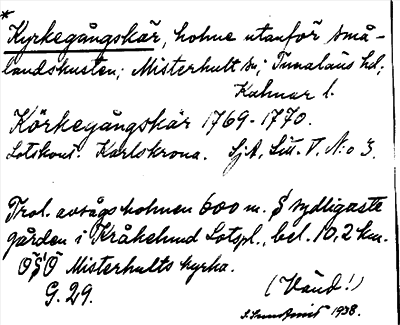 *
Kyrkegångskär, holme utanför små-
landskusten; Misterhult sn; Tunaläns hd;
Kalmar l.
Körkegångskär 1769-1770.
Lotskont. Karlskrona. SjA, Litt. V. N:o 3.
Trol. avsågs holmen 600 m. S sydligaste
gården i Kråkelund Lotspl., bel. 10,2 km.
ÖSÖ Misterhults kyrka.
G. 29.
(Vänd!)
1938.